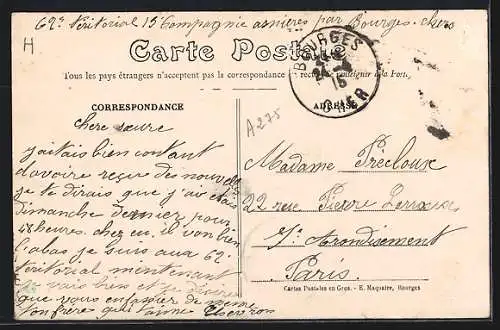 62e Téritorial 15e Compagnie asnières par Bourges. cher
H
Carte Postale
Tous les pays étrangers n'acceptent pas la correspondance au recto se renseigner à la Poste
BOURGES
15
CHER
CORRESPONDANCE
ADRESSE
A275
chere sœure
jaitais bien contant
d'avoire reçue des nouvel
je te dirais que j'ai
dimanche dernier pour
48 heures. cher eu. il von bien
labas je suis aux 62e
téritorial mentenant
vais bien et je désires
que vous en de meme
ton frère qui t'aime
Madame Précloux
22 rue Pierre Leroux
7e Arondisement
Paris.
Cartes Postales en Gros. - E. Maquaire, Bourges